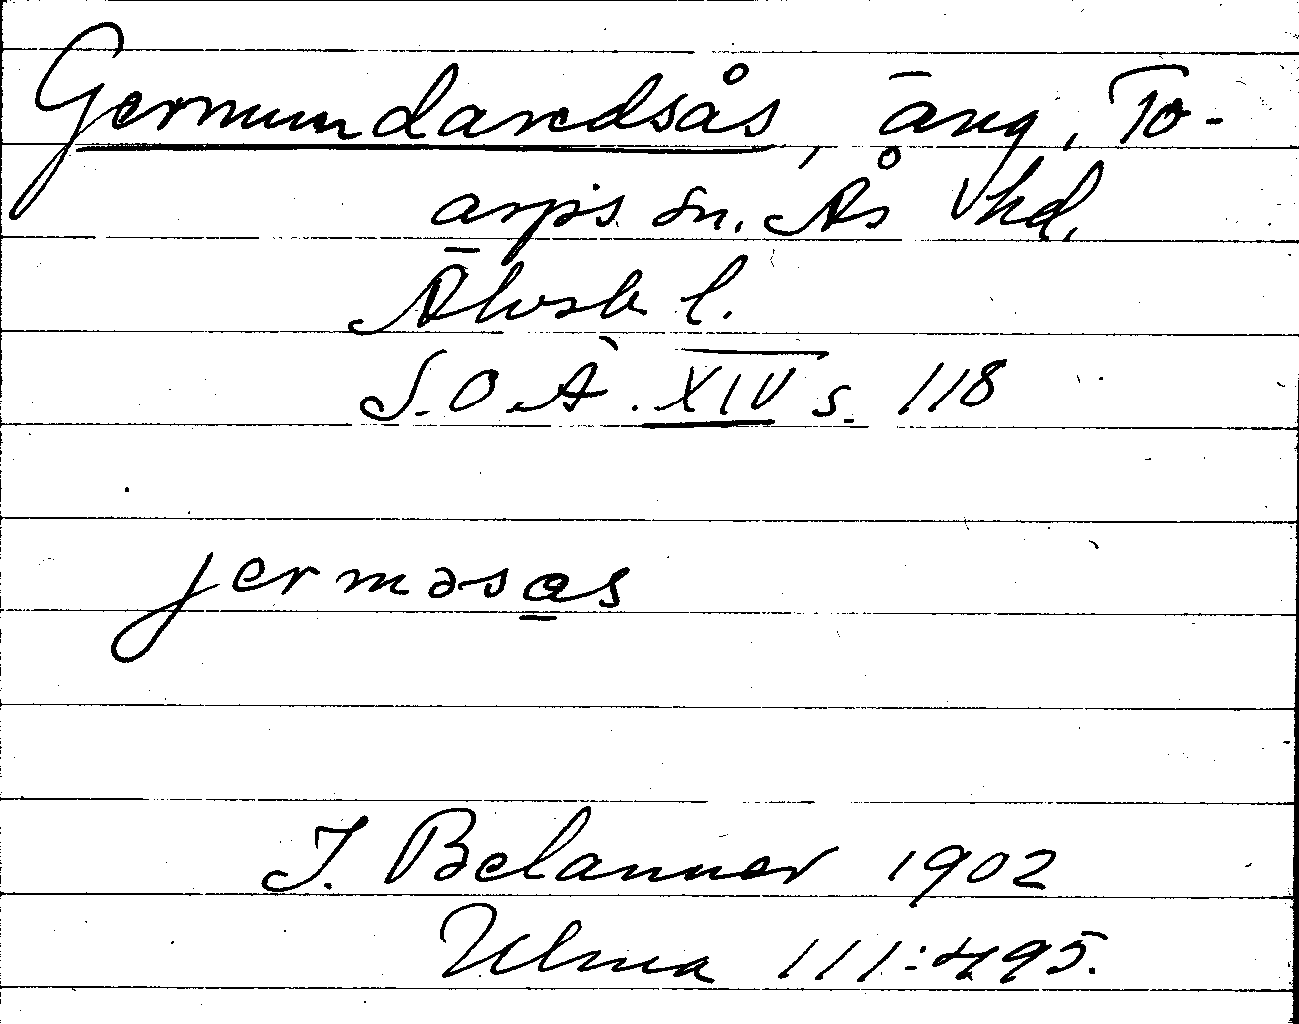 Germundaredsås, äng, To-
arps sn. Ås hd.
Älvsb l.
S.O.Ä. XIV s. 118
jerməsas
J. Belanner 1902
Ulma 111:495.